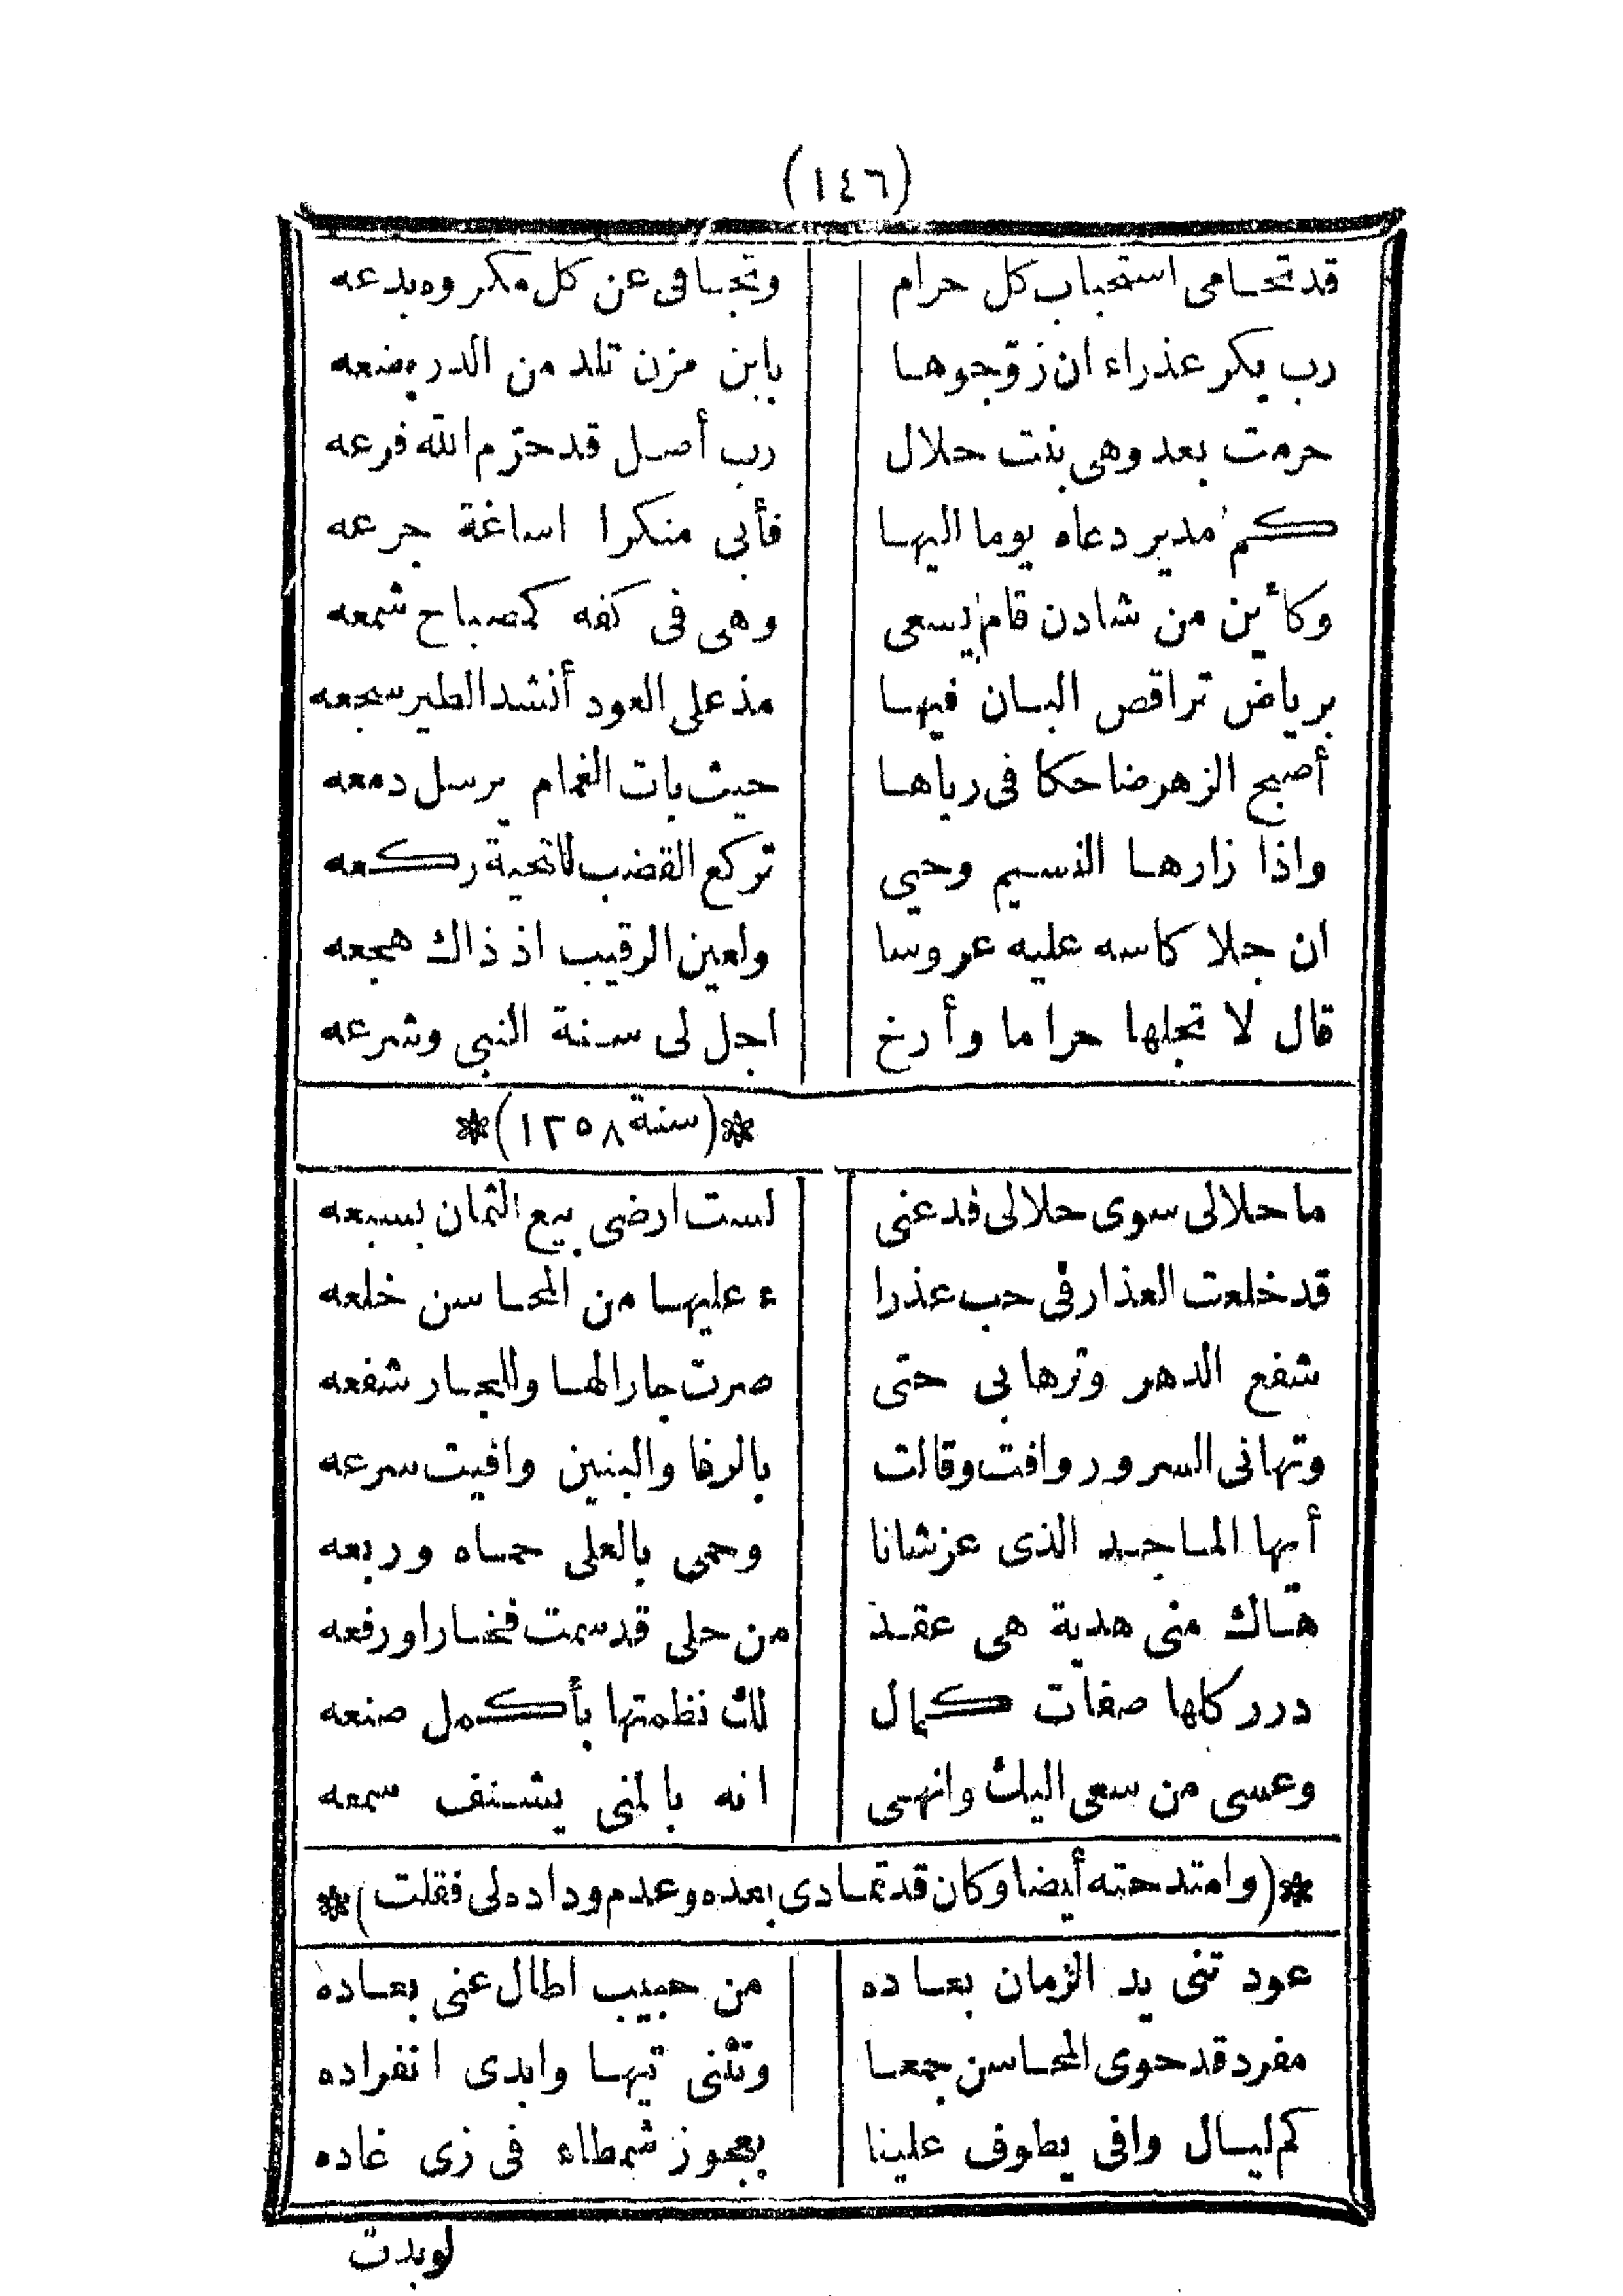 (١٤٦)
قد تحامى استحباب كل حرام وتجافى عن كل مكروه بدعه
رب بكر عذراء ان زوّجوها بابن مزن تلد من الدر بضعه
حرمت بعد وهى بنت حلال رب أصل قد حرّم الله فرعه
كم مدير دعاه يوما اليها فأبى منكرا اساغة جرعه
وكأين من شادن قام يسعى وهى فى كفه كمصباح شمعه
برياض تراقص البان فيها مذ على العود أنشد الطير سجعه
أصبح الزهر ضاحكا فى رباها حيث بات الغمام يرسل دمعه
واذا زارها النسيم وحيى تركع القضب للتحية ركعه
ان جلا كاسه عليه عروسا ولعين الرقيب اذ ذاك هجعه
قال لا تجلها حراما وأرخ اجل لى سنة النبى وشرعه
*(سنة ١٢٥٨)*
ما حلالى سوى حلالى فدعنى لست ارضى بيع الثمان بسبعه
قد خلعت العذار فى حب عذرا ء عليها من المحاسن خلعه
شفع الدهر وترها بى حتى صرت جارا لها وللجار شفعه
وتهانى السرور وافت وقالت بالرفا والبنين وافيت سرعه
أيها الماجد الذى عز شانا وحمى بالعلى حماه وربعه
هاك منى هدية هى عقد من حلى قد سمت فخارا ورفعه
درر كلها صفات كمال لك نظمتها بأكمل صنعه
وعسى من سعى اليك وانهى انه بالمنى يشنف سمعه
*(وامتدحته أيضا وكان قد تمادى بعده وعدم وداده لى فقلت)*
عود تنى يد الزمان بعاده من حبيب اطال عنى بعاده
مفرد قد حوى المحاسن جمعا وتثنى تيها وابدى انفراده
كم ليال وافى يطوف علينا بعجوز شمطاء فى زى غاده
لو بدت